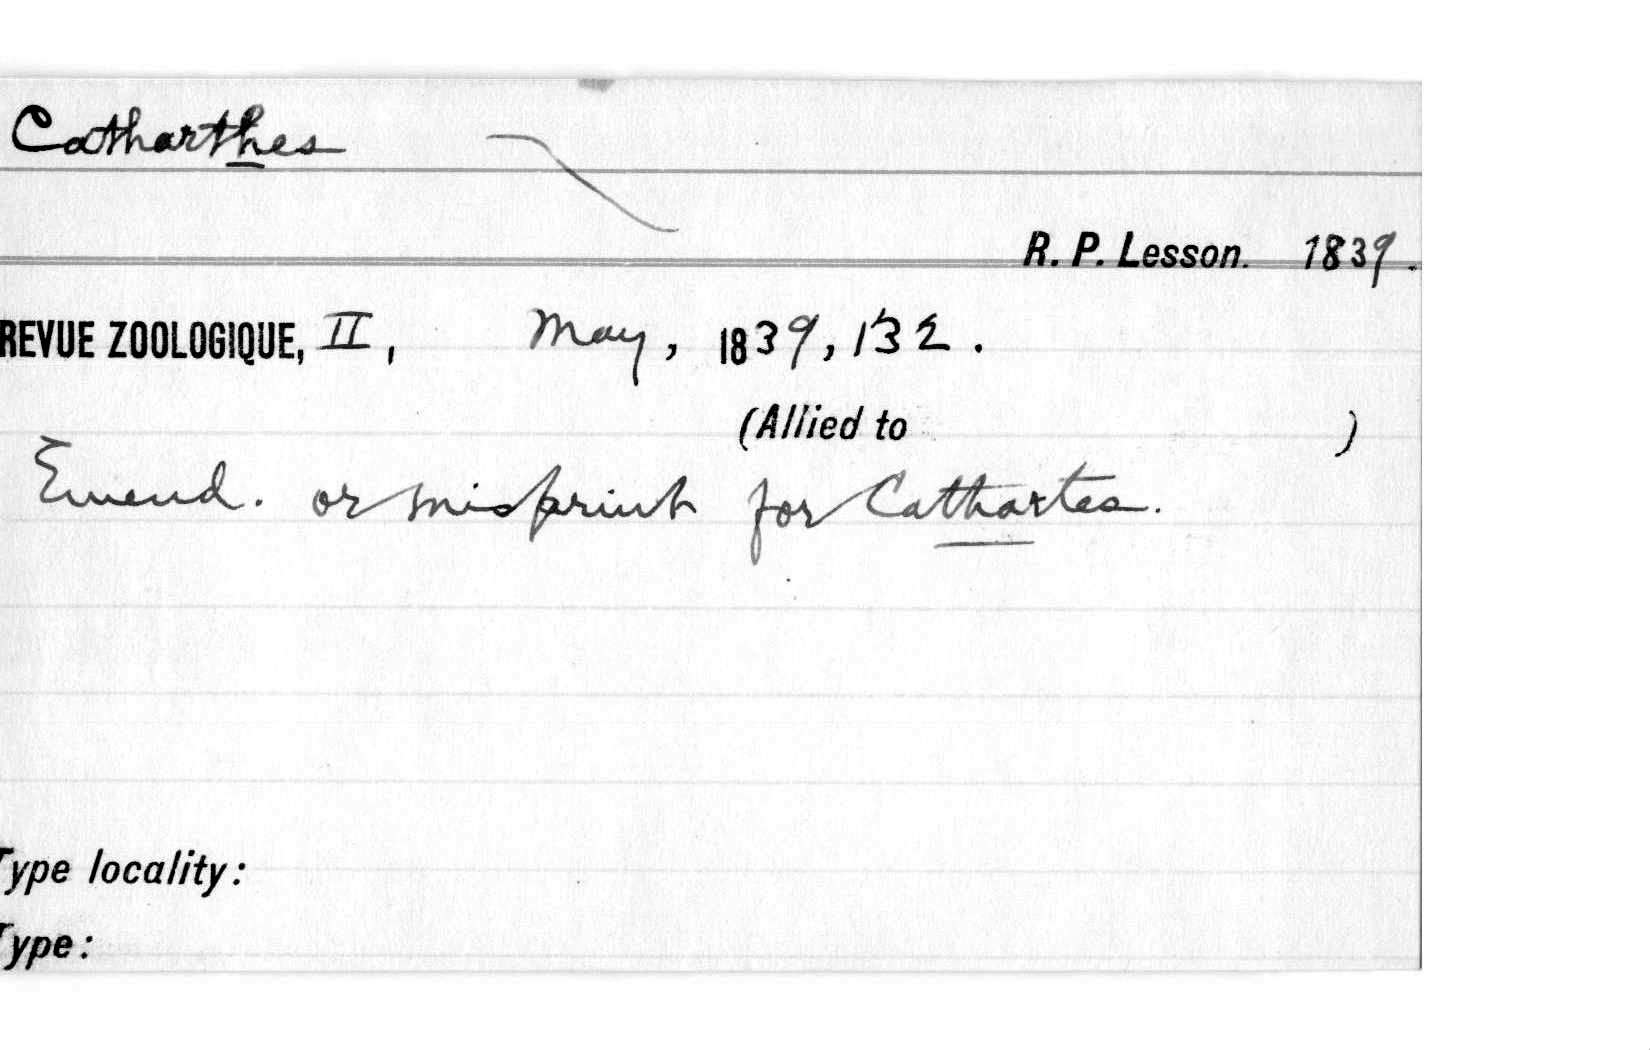 Catharthes
R. P. Lesson. 1839.
REVUE ZOOLOGIQUE, II, May, 1839, 132.
(Allied to )
Emend. or misprint for Cathartes.
Type locality:
Type: